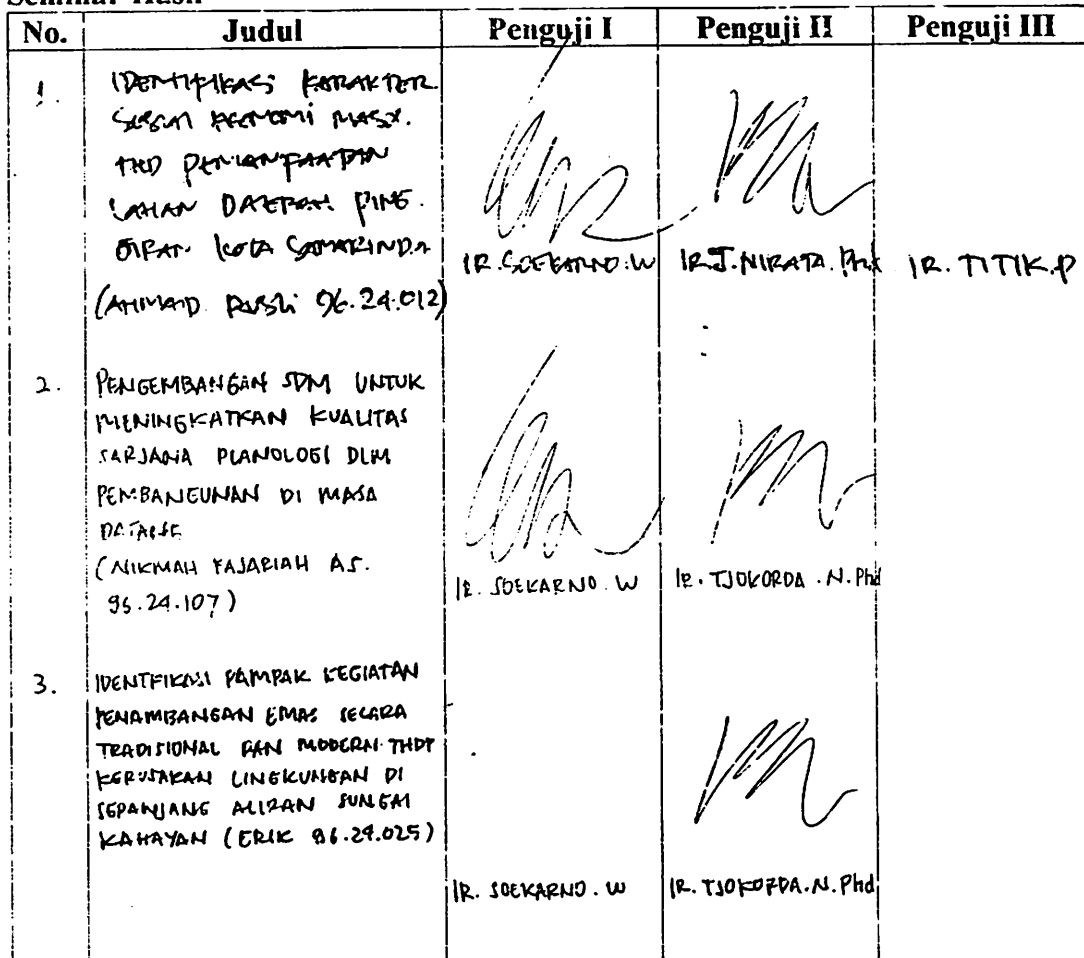 No. Judul Penguji I Penguji II Penguji III
1. IDENTIFIKASI KARAKTER
SOSIAL EKONOMI MASY.
THD PEMANFAATAN
LAHAN DAERAH PING.
GIRAN KOTA SAMARINDA
IR. SOEKARNO. W IR. J. NIRATA. Phd IR. TITIK. P
(AHMAD RUSLI 96.24.012)
2. PENGEMBANGAN SDM UNTUK
MENINGKATKAN KUALITAS
SARJANA PLANOLOGI DLM
PEMBANGUNAN DI MASA
(NIKMAH FAJARIAH AS.
IR. SOEKARNO. W IR. TJOKORDA. N. Phd
95.24.107)
3. IDENTFIKASI DAMPAK KEGIATAN
PENAMBANGAN EMAS SECARA
TRADISIONAL DAN MODERN THDP
KERUSAKAN LINGKUNGAN DI
SEPANJANG ALIRAN SUNGAI
KAHAYAN (ERIK 96.24.025)
IR. SOEKARNO. W IR. TJOKORDA. N. Phd